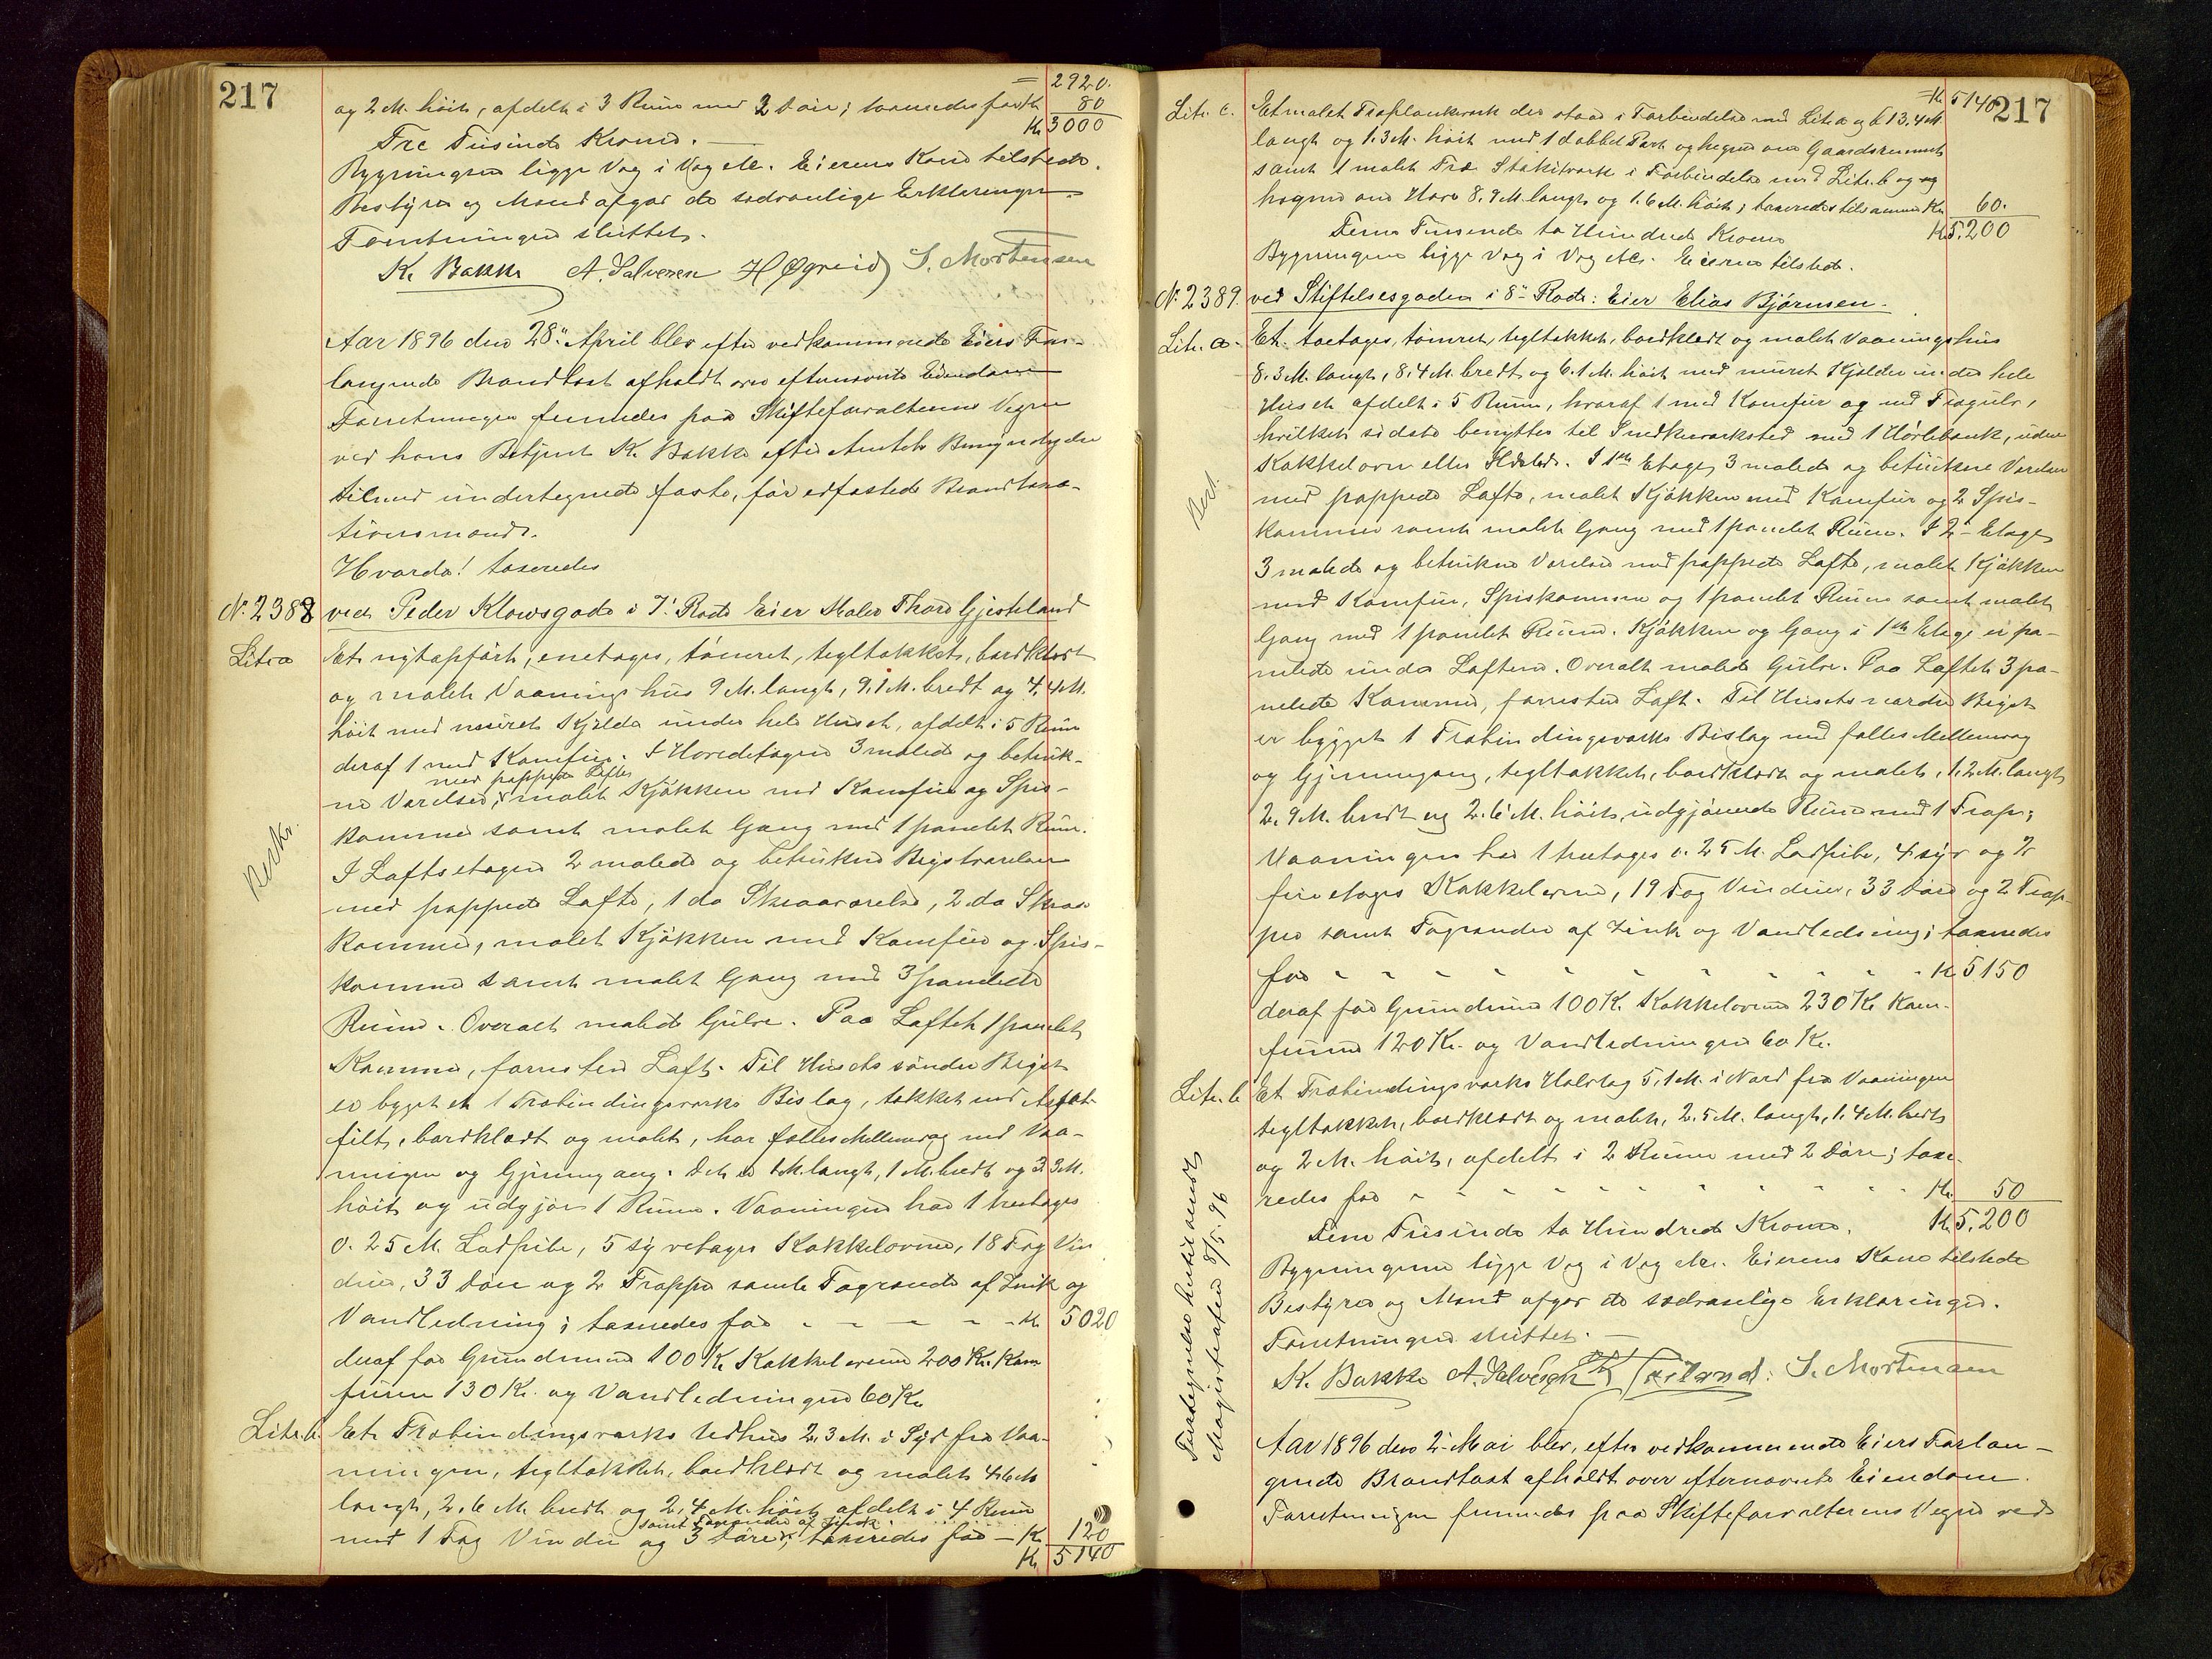 217
= 2920.
og 2 M. høit, afdelt i 3 Rum med 2 Døre; taxeredes for Kr 80
Tre Tusinde Kroner. — Kr 3000
Bygningen ligge Væg i Væg etc. Eierens Kone tilstede.
Bestyrer og Mænd afgav de sædvanlige Erklæringer.
Forretningen sluttet.
K. Bakke A. Salvesen H Øgreid S. Mortensen
Aar 1896 den 28de April blev efter vedkommende Eiers For-
langende Brandtaxt afholdt over efternævnte Eiendom
Forretningen fremmedes paa Skifteforvalterens Vegne
ved hans Betjent K. Bakke efter Amtets Bemyndigelse
tilmed undertegnede faste, før edfæstede Brandtaxa-
tionsmænd.
Hvorda! taxeredes
No. 2388 ved Peder Klowsgade i 7. Rode Eier Maler Thore Gjesteland
Litr a Et nyt opført, enetages, tømret, tegltækket, bordklædt
og malet Vaaningshus 9 M. langt, 9,1 M. bredt og 4,4 M.
høit med muret Kjælder under hele Huset, afdelt i 5 Rum
deraf 1 med Komfur. I Hovedetagen 3 malede og betruk-
med pappede Lofter
ne Værelser, malet Kjøkken med Komfur og Spis-
kammer samt malet Gang med 1 panelet Rum.
I Loftsetagen 2 malede og betrukne Kvistværelser
med pappede Lofte, 1 do Skraaværelse, 2 do Skraa
kammer, malet Kjøkken med Komfur og Spis-
kammer samt malet Gang med 3 panelede
Rum. Overalt malede Gulve. Paa Loftet 1 panelet
Kammer, forresten Loft. Til Husets søndre Bryst
er bygget et 1 Træbindingsværks Bislag, tækket med Asfalt
filt, bordklædt og malet, har fælles Mellemvæg med Vaa-
ningen og Gjennemgang. Det er 1 M. langt, 1 M. bredt og 3.3 M.
høit og udgjør 1 Rum. Vaaningen har 1 treetages
0.25 M. Lodpibe, 5 syvetages Kakkelovne, 18 Fag Vin
duer, 33 Døre og 2 Trapper samt Tagrender af Zink og
Vandledning; taxeredes for - - - - - Kr 5020
deraf for Grundmur 100 Kr. Kakkelovne 200 Kr. Kom
furer 130 Kr. og Vandledningen 60 Kr.
Litr. b. Et Træbindingsværks Udhus 2,3 M. i Syd fra Vaa-
ningen, tegltækket, bordklædt og malet 4.6 M
langt, 2,6 M. bredt og 2,4 M. høit afdelt i 4 Rum
samt Tagrender af Zink
med 1 Fag Vindu og 3 Døre; taxeredes for — Kr. 120
Kr. 5140
Bertr.
217
Kr 5140
Litr. c. Et malet Træplankeværk der staar i Forbindelse med Litr. a og b 13,4 M
langt og 1.3 M. høit med 1 dobbel Port og hegner om Gaardsrummet
samt 1 malet Træ Stakitværk i Forbindelse med Litr. b og og
hegner om Have 8.9 M. langt og 1.6 M. høit; taxeredes tilsammen Kr. 60.
Fem Tusende to Hundrede Kroner Kr. 5.200
Bygningerne ligge Væg i Væg etc. Eieren tilstede.
No. 2389. ved Stiftelsesgaden i 8de Rode: Eier Elias Bjørnsen.
Litr. a. Et toetages, tømret, tegltækket, bordklædt og malet Vaaningshus
8.3 M. langt, 8.4 M. bredt og 6.1 M. høit med muret Kjælder under hele
Huset afdelt i 5 Rum, hvoraf 1 med Komfur og med Trægulv,
hvilket sidste benyttes til Snedkerværksted med 1 Høvlebænk, uden
Kakkelovn eller Ildsted. I 1ste Etage, 3 malede og betrukne Værelser
med pappede Lofte, malet Kjøkken med Komfur og 2 Spis-
kammer samt malet Gang med 1 panelet Rum. I 2de Etage
3 malede og betrukne Værelser med pappede Lofte, malet Kjøkken
med Komfur, Spiskammer og 1 panelet Rum samt malet
Gang med 1 panelet Rum. Kjøkken og Gang i 1ste Etage er pa-
nelede under Lofterne. Overalt malede Gulve. Paa Loftet 3 pa-
nelede Kammer, forresten Loft. Til Husets nordre Bryst
er bygget 1 Træbindingsværks Bislag med fælles Mellemvæg
og Gjennemgang, tegltækket, bordklædt og malet, 1,2 M. langt
2.9 M. bredt og 2.6 M. høit, udgjørende Rum med 1 Trap;
Vaaningen har 1 treetages 0.25 M. Lodpibe, 4 syv og 2
fireetages Kakkelovne, 19 Fag Vinduer, 33 Døre og 2 Trap-
per samt Tagrender af Zink og Vandledning; taxeredes
for - - - - - - - - - - - Kr 5150
deraf for Grundmur 100 Kr. Kakkelovne 230 Kr Kom-
furer 120 Kr. og Vandledningen 60 Kr.
Litr. b Et Træbindingsværks Halvtag 5,1 M. i Nord fra Vaaningen
tegltækket, bordklædt og malet, 2.5 M. langt, 1.4 M. bredt
og 2 M. høit, afdelt i 2 Rum med 2 Døre; taxe-
redes for - - - - - - - - - Kr. 50
Fem Tusinde to Hundrede Kroner. Kr. 5.200
Bygningerne ligge Væg i Væg etc. Eierens Kone tilstede
Bestyrer og Mænd afgav de sædvanlige Erklæringer.
Forretningen sluttet. —
K. Bakke A. Salvesen S. Mortensen
Aar 1896 den 2de Mai blev, efter vedkommende Eiers Forlan-
gende Brandtaxt afholdt over efternævnte Eiendom.
Forretningen fremmedes paa Skifteforvalterens Vegne ved
Bert.
Magistraten 8/5. 96